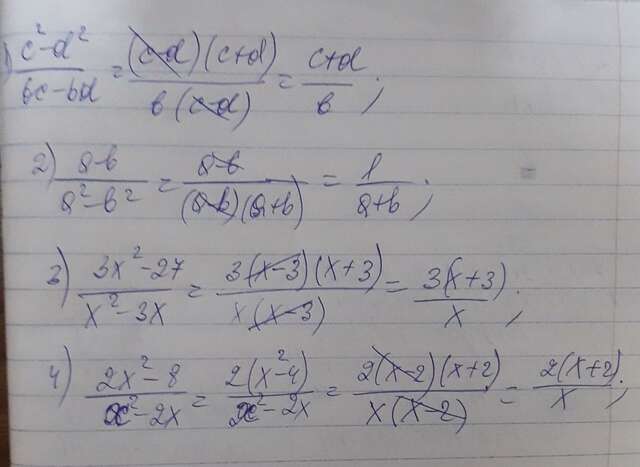 1) (c²-d²)/(bc-bd) = ((c-d)(c+d))/(b(c-d)) = (c+d)/b ;
2) (a-b)/(a²-b²) = (a-b)/((a-b)(a+b)) = 1/(a+b) ;
3) (3x²-27)/(x²-3x) = (3(x-3)(x+3))/(x(x-3)) = (3(x+3))/x ;
4) (2x²-8)/(x²-2x) = (2(x²-4))/(x²-2x) = (2(x-2)(x+2))/(x(x-2)) = (2(x+2))/x ;